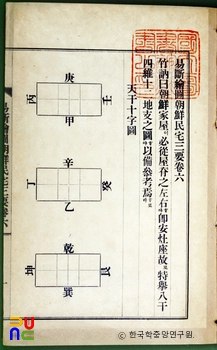 易斷繪圖朝鮮民宅三要卷六
竹訥曰朝鮮家屋必從屋脊之左右卽安灶座故特擧八干
四維十二地支之圖以備參考焉
天干十字圖
庚
丙 壬
甲
辛
丁 癸
乙
乾
坤 艮
巽
易斷繪圖朝鮮民宅三要卷六
한국학중앙연구원